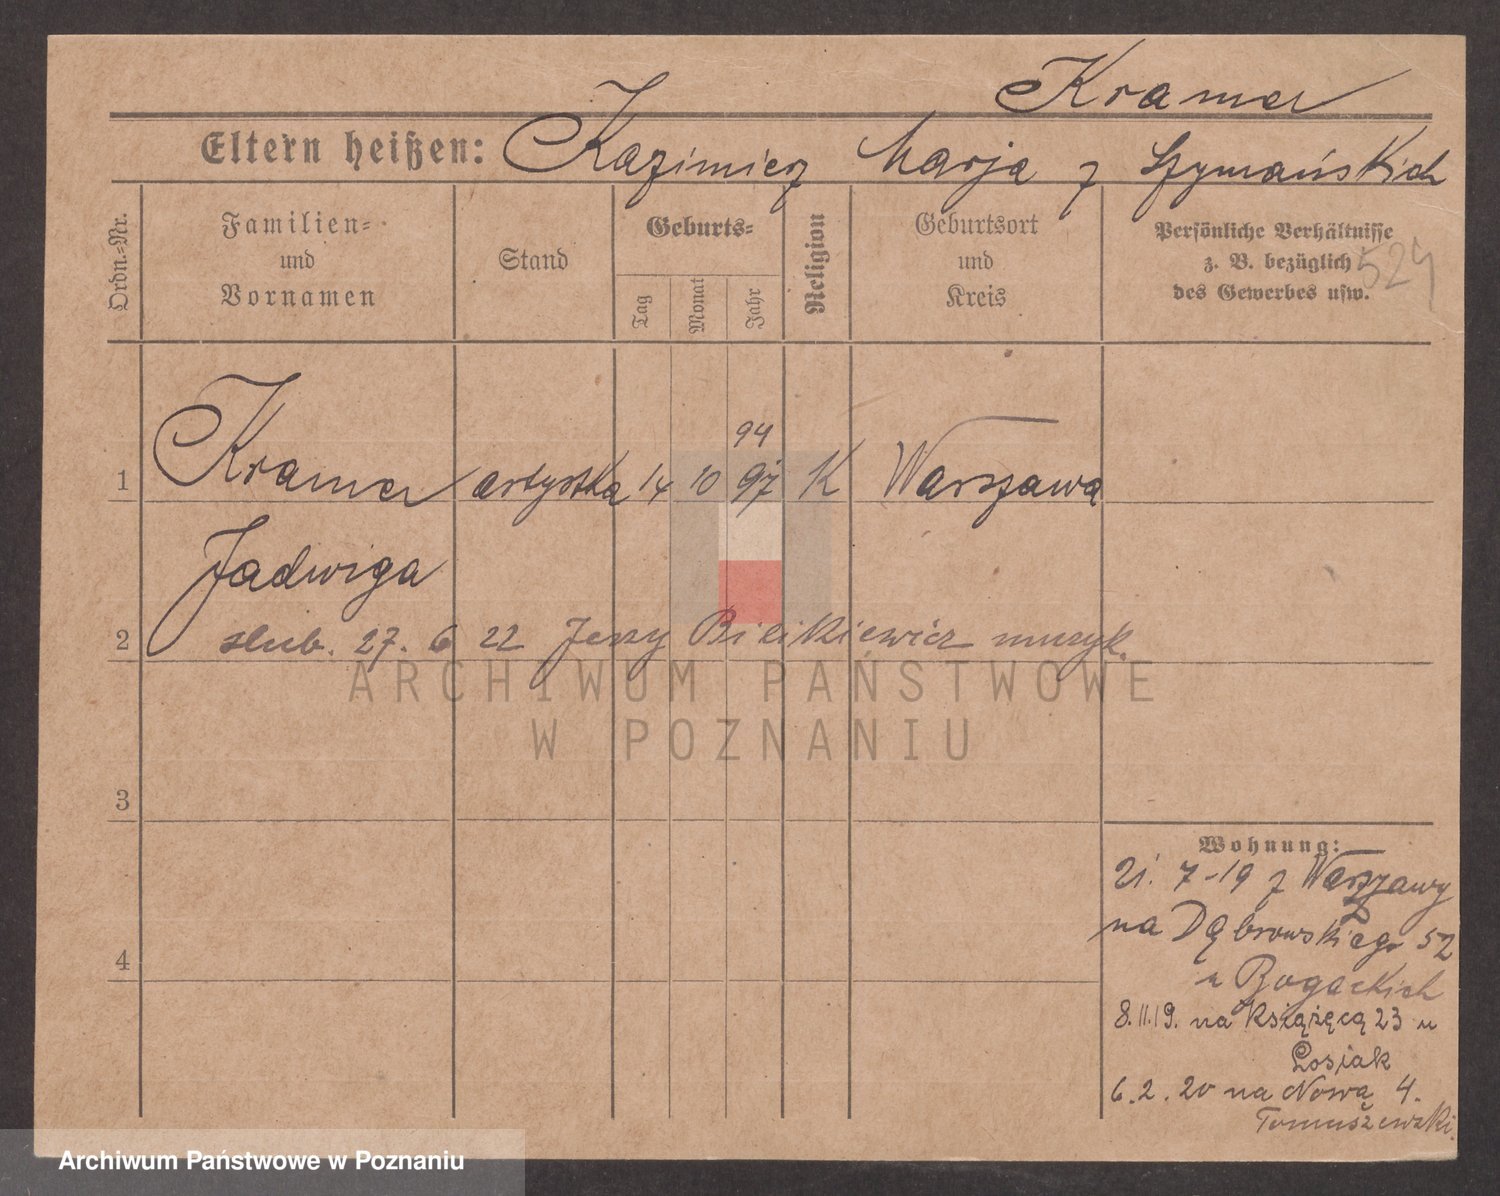 Kramer
Eltern heißen: Kazimierz Marja z Szymańskich
Ordn.-Nr.
Familien-
und
Vornamen
Stand
Geburts-
Tag
Monat
Jahr
Religion
Geburtsort
und
Kreis
Persönliche Verhältnisse
z. B. bezüglich
des Gewerbes usw.
524
94
1 Kramer artystka 14 10 97 K Warszawa
Jadwiga
2 slub. 27. 6 22 Jerzy Bilikiewicz muzyk.
ARCHIWUM PAŃSTWOWE
W POZNANIU
3
4
Wohnung:
21. 7-19 z Warszawy
na Dąbrowskiego 52
u Bogackich
8.11.19. na Książęcą 23 u
Łosiak
6.2.20 na Nową 4.
Tomaszewski.
Archiwum Państwowe w Poznaniu